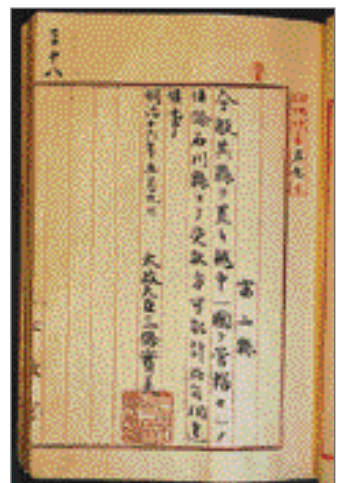 富山縣
今般其縣ヲ置キ越中一國ヲ管轄セシメ
候條石川縣ヨリ受取方可取計此旨相達
候事
明治十六年五月九日 太政大臣三條實美